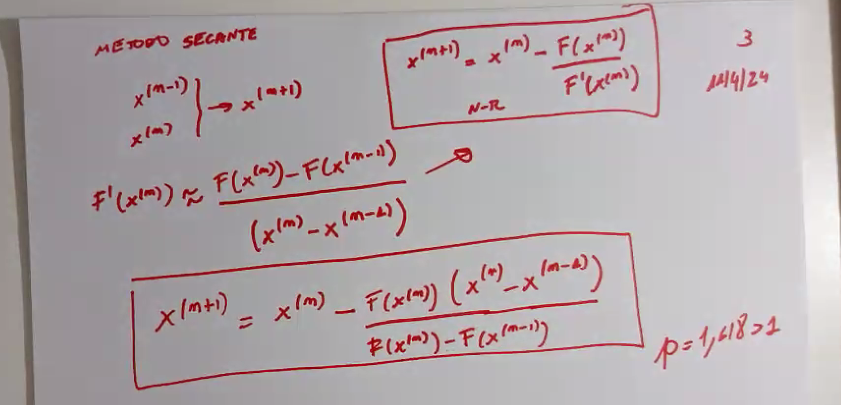 METODO SECANTE
x^(m+1) = x^(m) - F(x^(m)) / F'(x^(m))
N-R
3
11/4/24
x^(m-1)
x^(m)
} → x^(m+1)
F'(x^(m)) ≈ F(x^(m)) - F(x^(m-1)) / (x^(m) - x^(m-1)) →
x^(m+1) = x^(m) - F(x^(m)) (x^(m) - x^(m-1)) / F(x^(m)) - F(x^(m-1))
p = 1,618 > 1